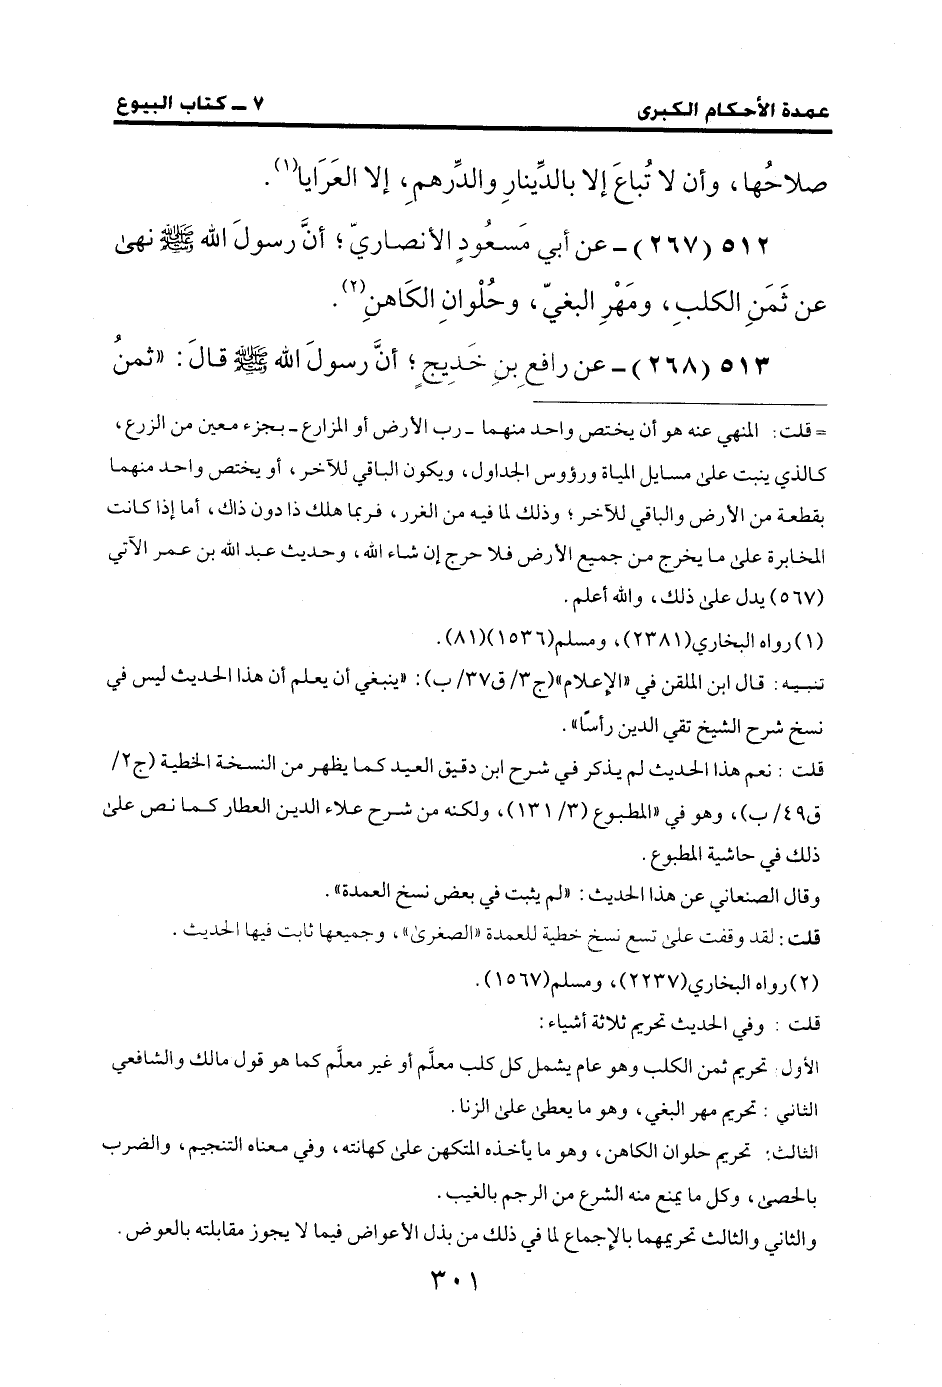 عمدة الأحكام الكبرى ٧ ـ كتاب البيوع
صلاحُها، وأن لا تُباعَ إلا بالدِّينارِ والدِّرهمِ، إلا العَرَايا(١).
٥١٢ (٢٦٧) ـ عن أبي مَسعُودٍ الأنصاريّ؛ أنَّ رسولَ الله ﷺ نهىٰ
عن ثَمَنِ الكلبِ، ومَهْرِ البغيّ، وحُلْوانِ الكَاهنِ(٢).
٥١٣ (٢٦٨) ـ عن رافعِ بنِ خَديجٍ؛ أنَّ رسولَ الله ﷺ قالَ: «ثمنُ
= قلت: المنهي عنه هو أن يختص واحد منهما ـ رب الأرض أو المزارع ـ بجزء معين من الزرع،
كالذي ينبت علىٰ مسايل المياة ورؤوس الجداول، ويكون الباقي للآخر، أو يختص واحد منهما
بقطعة من الأرض والباقي للآخر؛ وذلك لما فيه من الغرر، فربما هلك ذا دون ذاك، أما إذا كانت
المخابرة علىٰ ما يخرج من جميع الأرض فلا حرج إن شاء الله، وحديث عبد الله بن عمر الآتي
(٥٦٧) يدل علىٰ ذلك، والله أعلم.
(١) رواه البخاري (٢٣٨١)، ومسلم (١٥٣٦)(٨١).
تنبيه: قال ابن الملقن في «الإعلام» (ج٣/ ق٣٧/ ب): «ينبغي أن يعلم أن هذا الحديث ليس في
نسخ شرح الشيخ تقي الدين رأسًا».
قلت : نعم هذا الحديث لم يذكر في شرح ابن دقيق العيد كما يظهر من النسخة الخطية (ج٢/
ق٤٩/ ب)، وهو في «المطبوع (٣/ ١٣١)، ولكنه من شرح علاء الدين العطار كما نص علىٰ
ذلك في حاشية المطبوع.
وقال الصنعاني عن هذا الحديث: «لم يثبت في بعض نسخ العمدة».
قلت: لقد وقفت علىٰ تسع نسخ خطية للعمدة «الصغرىٰ»، وجميعها ثابت فيها الحديث.
(٢) رواه البخاري (٢٢٣٧)، ومسلم (١٥٦٧).
قلت : وفي الحديث تحريم ثلاثة أشياء:
الأول: تحريم ثمن الكلب وهو عام يشمل كل كلب معلَّم أو غير معلَّم كما هو قول مالك والشافعي
الثاني : تحريم مهر البغي، وهو ما يعطىٰ علىٰ الزنا.
الثالث: تحريم حلوان الكاهن، وهو ما يأخذه المتكهن علىٰ كهانته، وفي معناه التنجيم، والضرب
بالحصىٰ، وكل ما يمنع منه الشرع من الرجم بالغيب.
والثاني والثالث تحريمهما بالإجماع لما في ذلك من بذل الأعواض فيما لا يجوز مقابلته بالعوض.
٣٠١